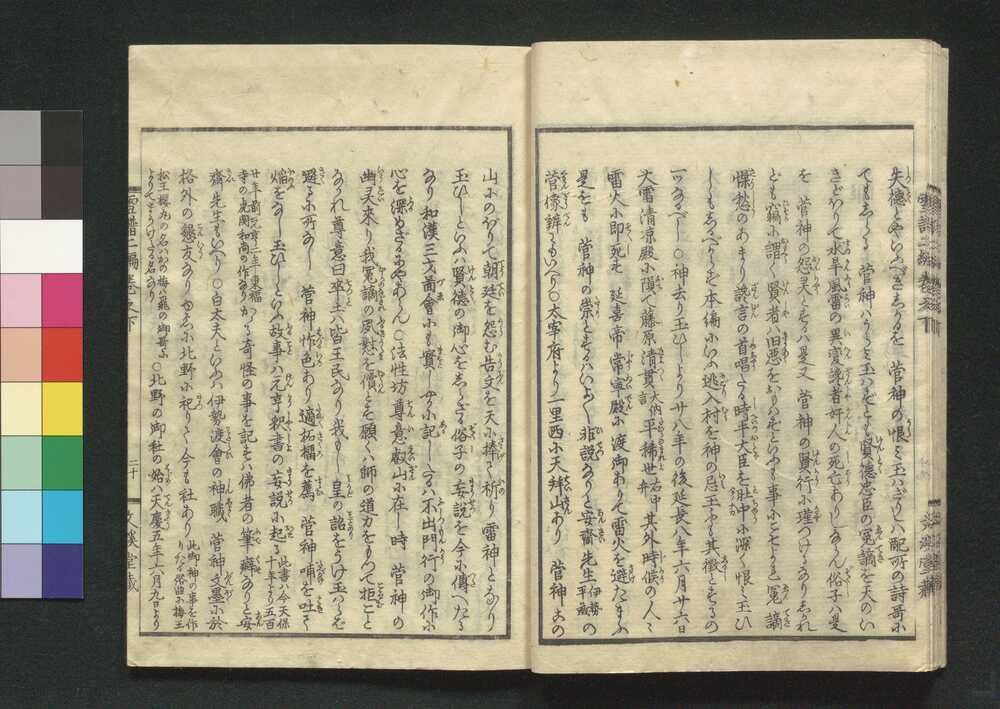 失徳とやいふべきしかるを 菅神の恨ミ玉ハざりしハ配所の詩哥に
てもしらる 菅神ハうらミ玉ハぞとも賢徳忠臣の冤謫を天のい
きどほりて水旱風雷の異変讒者奸人の死亡ありしならん俗子ハ是
を 菅神の怨灵とするハ是又 菅神の賢行に瑾つけるなりしかれ
ども竊に謂く賢者ハ旧悪をおもハぞといふも事にこそよれ冤謫
懆愁のあまり讒言の首唱たる時平大臣を肚中に深く恨ミ玉ひ
しもしるべからぞ本偏にいふ逃入村を神の忌玉ふも其徴とするの
一つなるべし○神去り玉ひしより廿八年の後延長八年六月廿六日
大雷清凉殿に隕て藤原清貫大納言平稀世右中弁其外時候の人々
雷火に即死す 延喜帝常寧殿に渡御ありて雷火を避たまふ
是をも 菅神の祟とするハいよ〳〵非説なりと安齋先生伊勢平藏の
菅像辨にもいへり○太宰府より一里西に天拜山あり 菅神この
山にのぼりて朝廷を怨む告文を天に捧て祈り雷神となり
玉ひしといふハ賢徳の御心をしらざる俗子の妄説を今に傳へたる
なり和漢三才圖會にも實しやかに記しゝハ不出門行の御作に
心を深めざるにやあらん○法性坊尊意叡山に在し時 菅神の
幽灵來り我冤謫の夙懟を償とぞ願くハ師の道力をもつて拒こと
なかれ尊意曰卒土ハ皆王民なり我もし 皇の詔をうけ玉はらば
避るに所なし 菅神怍色あり適柘榴を薦 菅神哺を吐て
焔をなし玉ひしといふ故事ハ元亨釈書の妄説に起る此書ハ今天保十年より五百
廿年前元亨二年東福寺の虎関和尚の作なりかゝる奇怪の事を記すハ佛者の筆癖なりと安
齋先生もいへり○白太夫といふハ伊勢渡會の神職 菅神文墨に於
格外の懇友なりゆゑに北野に祀りて今も社あり此御神の事を作りたる俗曲に梅王
松王櫻丸の名ハかの梅ハ飛の御哥によりてまうけたる名なり○北野の御社の始ハ天慶五年六月九日より
雪譜二編巻之下
二十
文溪堂藏